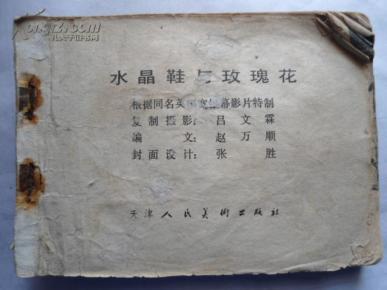 水晶鞋与玫瑰花
根据同名英国宽银幕影片特制
复制摄影：吕文霖
编文：赵万顺
封面设计：张胜
天津人民美術出版社